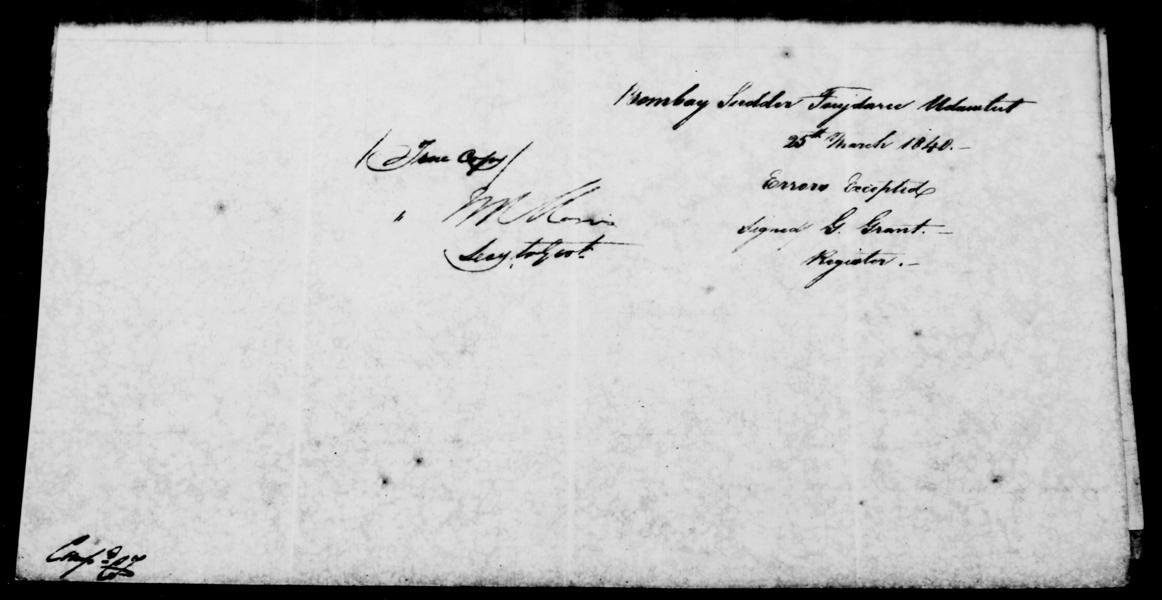 Bombay Sudder Foujdaree Udawlut
25th March 1840.-
Errors Excepted
Signed G. Grant.-
Register.-
(True Copy)
"
Secy. to Govt.
Comp.d